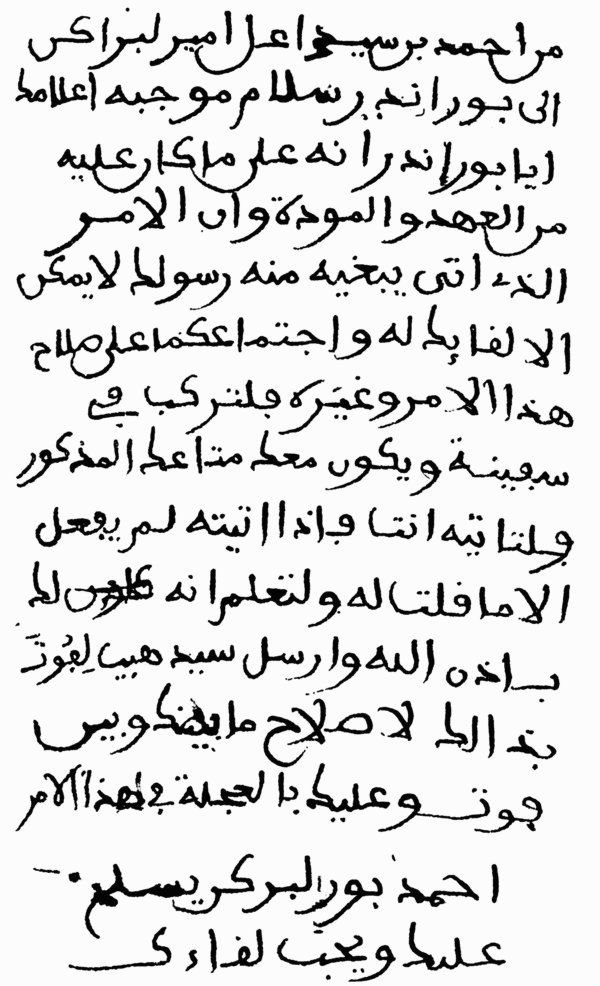 من احمد بن سيد اعل امير لبراكن
الى بور اندر سلام موجبه اعلامك
ايا بور اندر انه على ما كان عليه
من العهد والمودة وان الامر
الذي اتى يبغيه منه رسولك لا يمكن
الا لقا بك له واجتماعكما على صلاح
هذا الامر وغيره فلتركب في
سفينة ويكون معك متاعك المذكور
فلتاتيه انتا فاذا اتيته لم يفعل
الا ما قلتا له ولتعلم انه لك
باذن الله وارسل سيد هيب لفوت
بذالك لاصلاح ما بينك وبين
فوت وعليك بالعجلة في هذا الامر
احمد بور البركن يسلم
عليك ويحب لقاءك